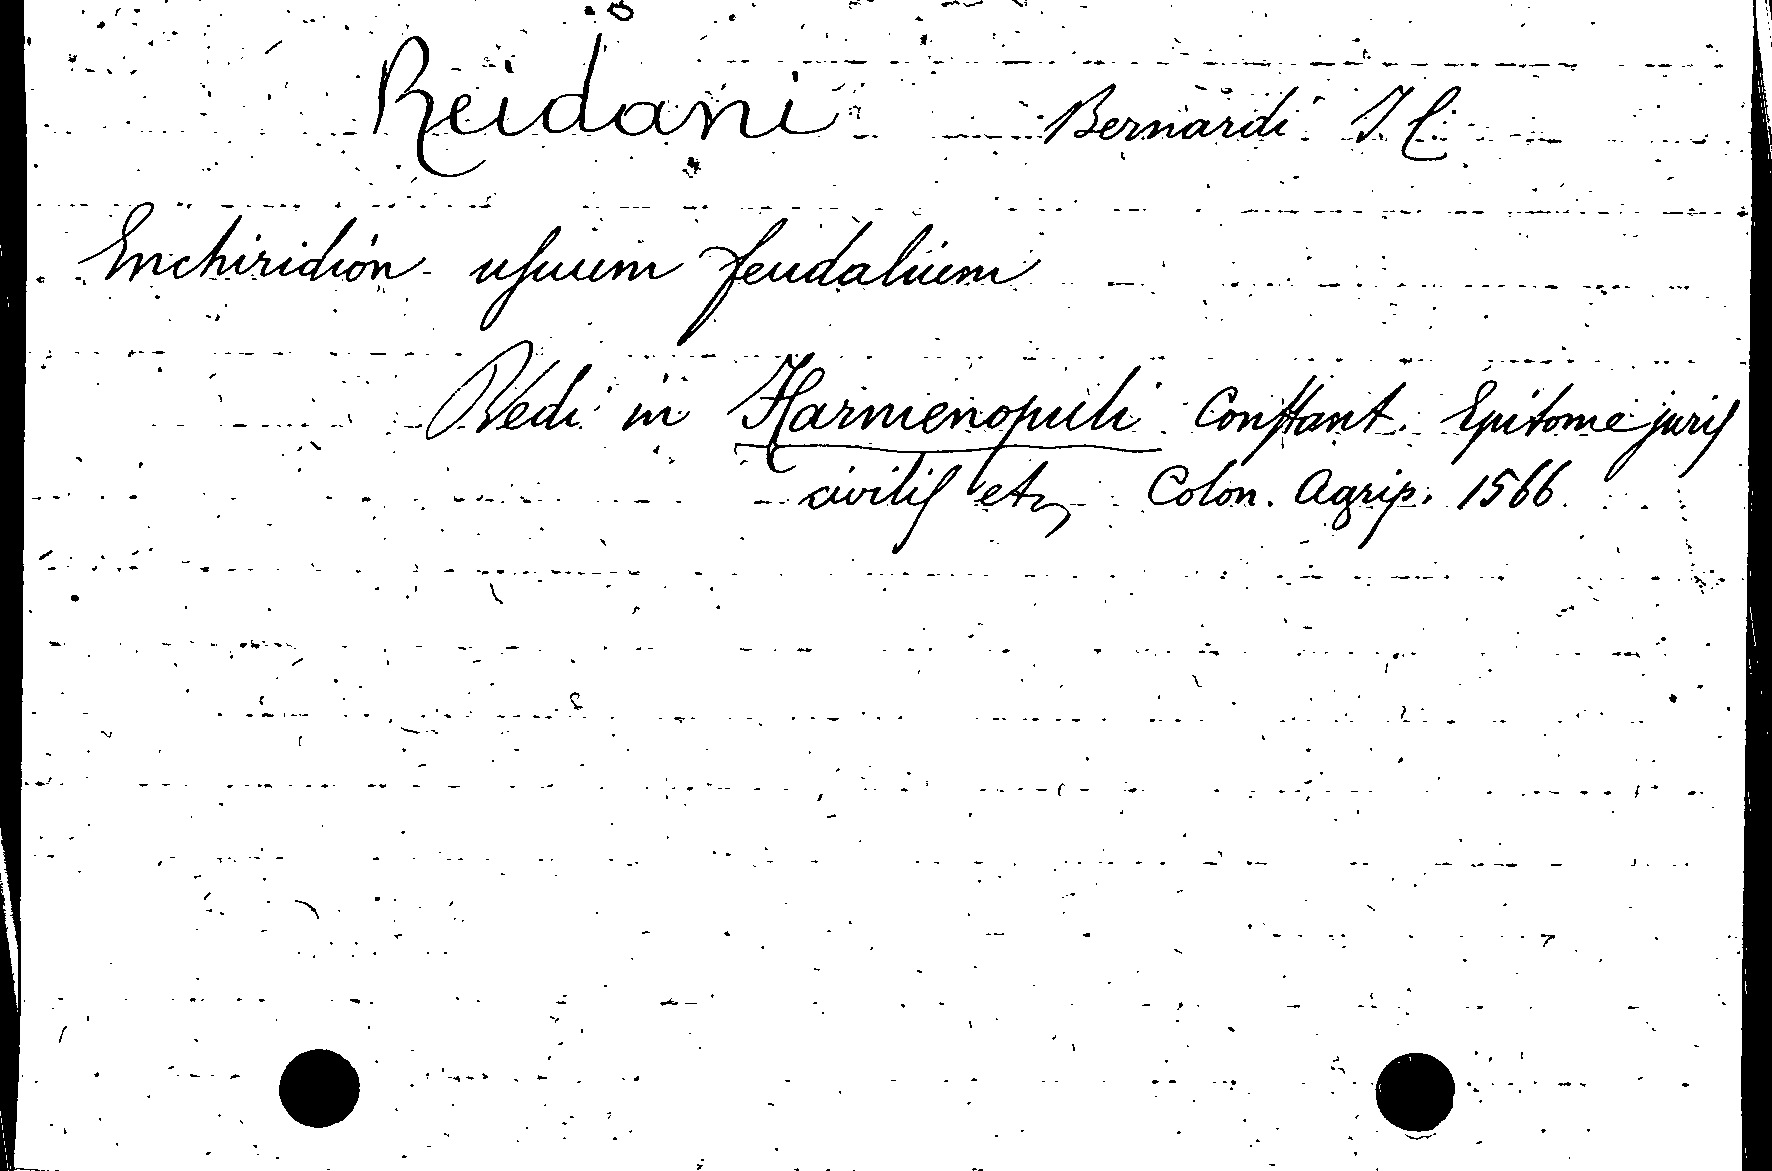 Reidani Bernardi J C
Enchiridion uſuum feudalium
Vedi in Harmenopuli Conſtant. Epitome juriſ
civiliſ etc Colon. Agrip. 1566